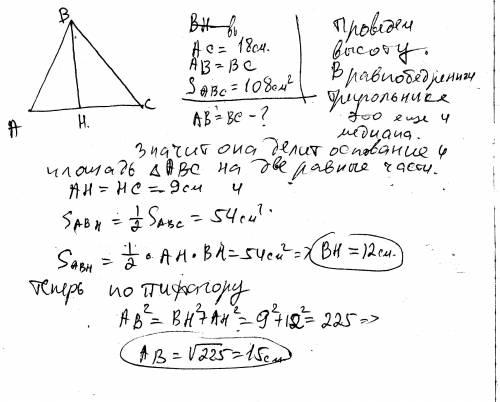 B
A
H.
C
BH – вы
AC = 18 см.
AB = BC
S ABC = 108 см²
AB = BC – ?
Проведем
высоту.
В равнобедренном
треугольнике
это еще и
медиана.
Значит она делит основание и
площадь △ABC на две равные части.
AH = HC = 9 см и
S ABH = 1/2 S ABC = 54 см².
S ABH = 1/2 · AH · BH = 54 см² => BH = 12 см.
Теперь по Пифагору
AB² = BH² + AH² = 9² + 12² = 225 =>
AB = √225 = 15 см